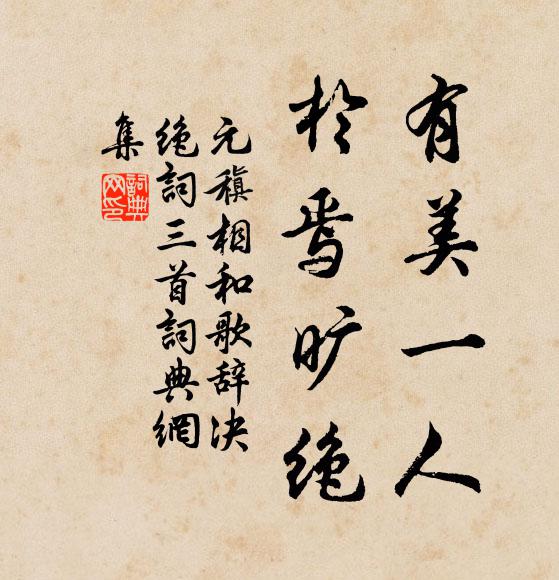 有美一人
於焉旷绝
元稹相和歌辞决
绝詞三首詞典網
集
詞典
网印